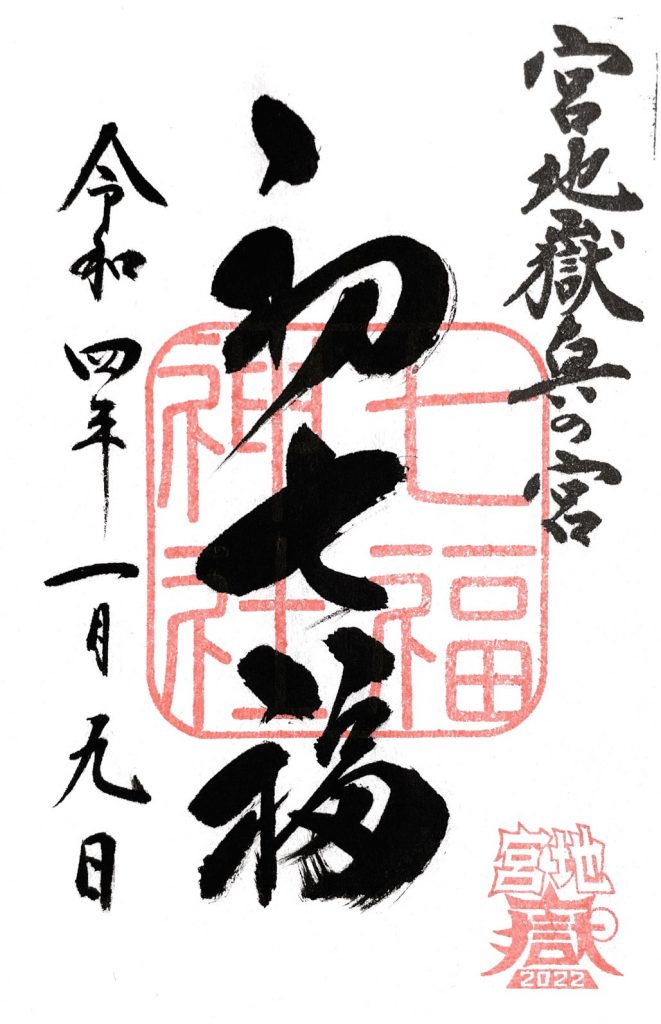 宮地嶽奥の宮
初七福
令和四年一月九日
七福
神社
宮地
嶽
2022